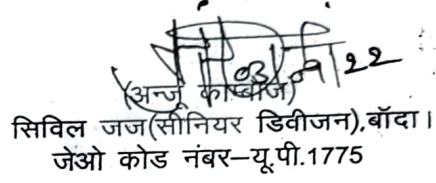 03/01/22
(अन्जू काम्बोज)
सिविल जज(सीनियर डिवीजन),बॉदा।
जेओ कोड नंबर–यू.पी.1775